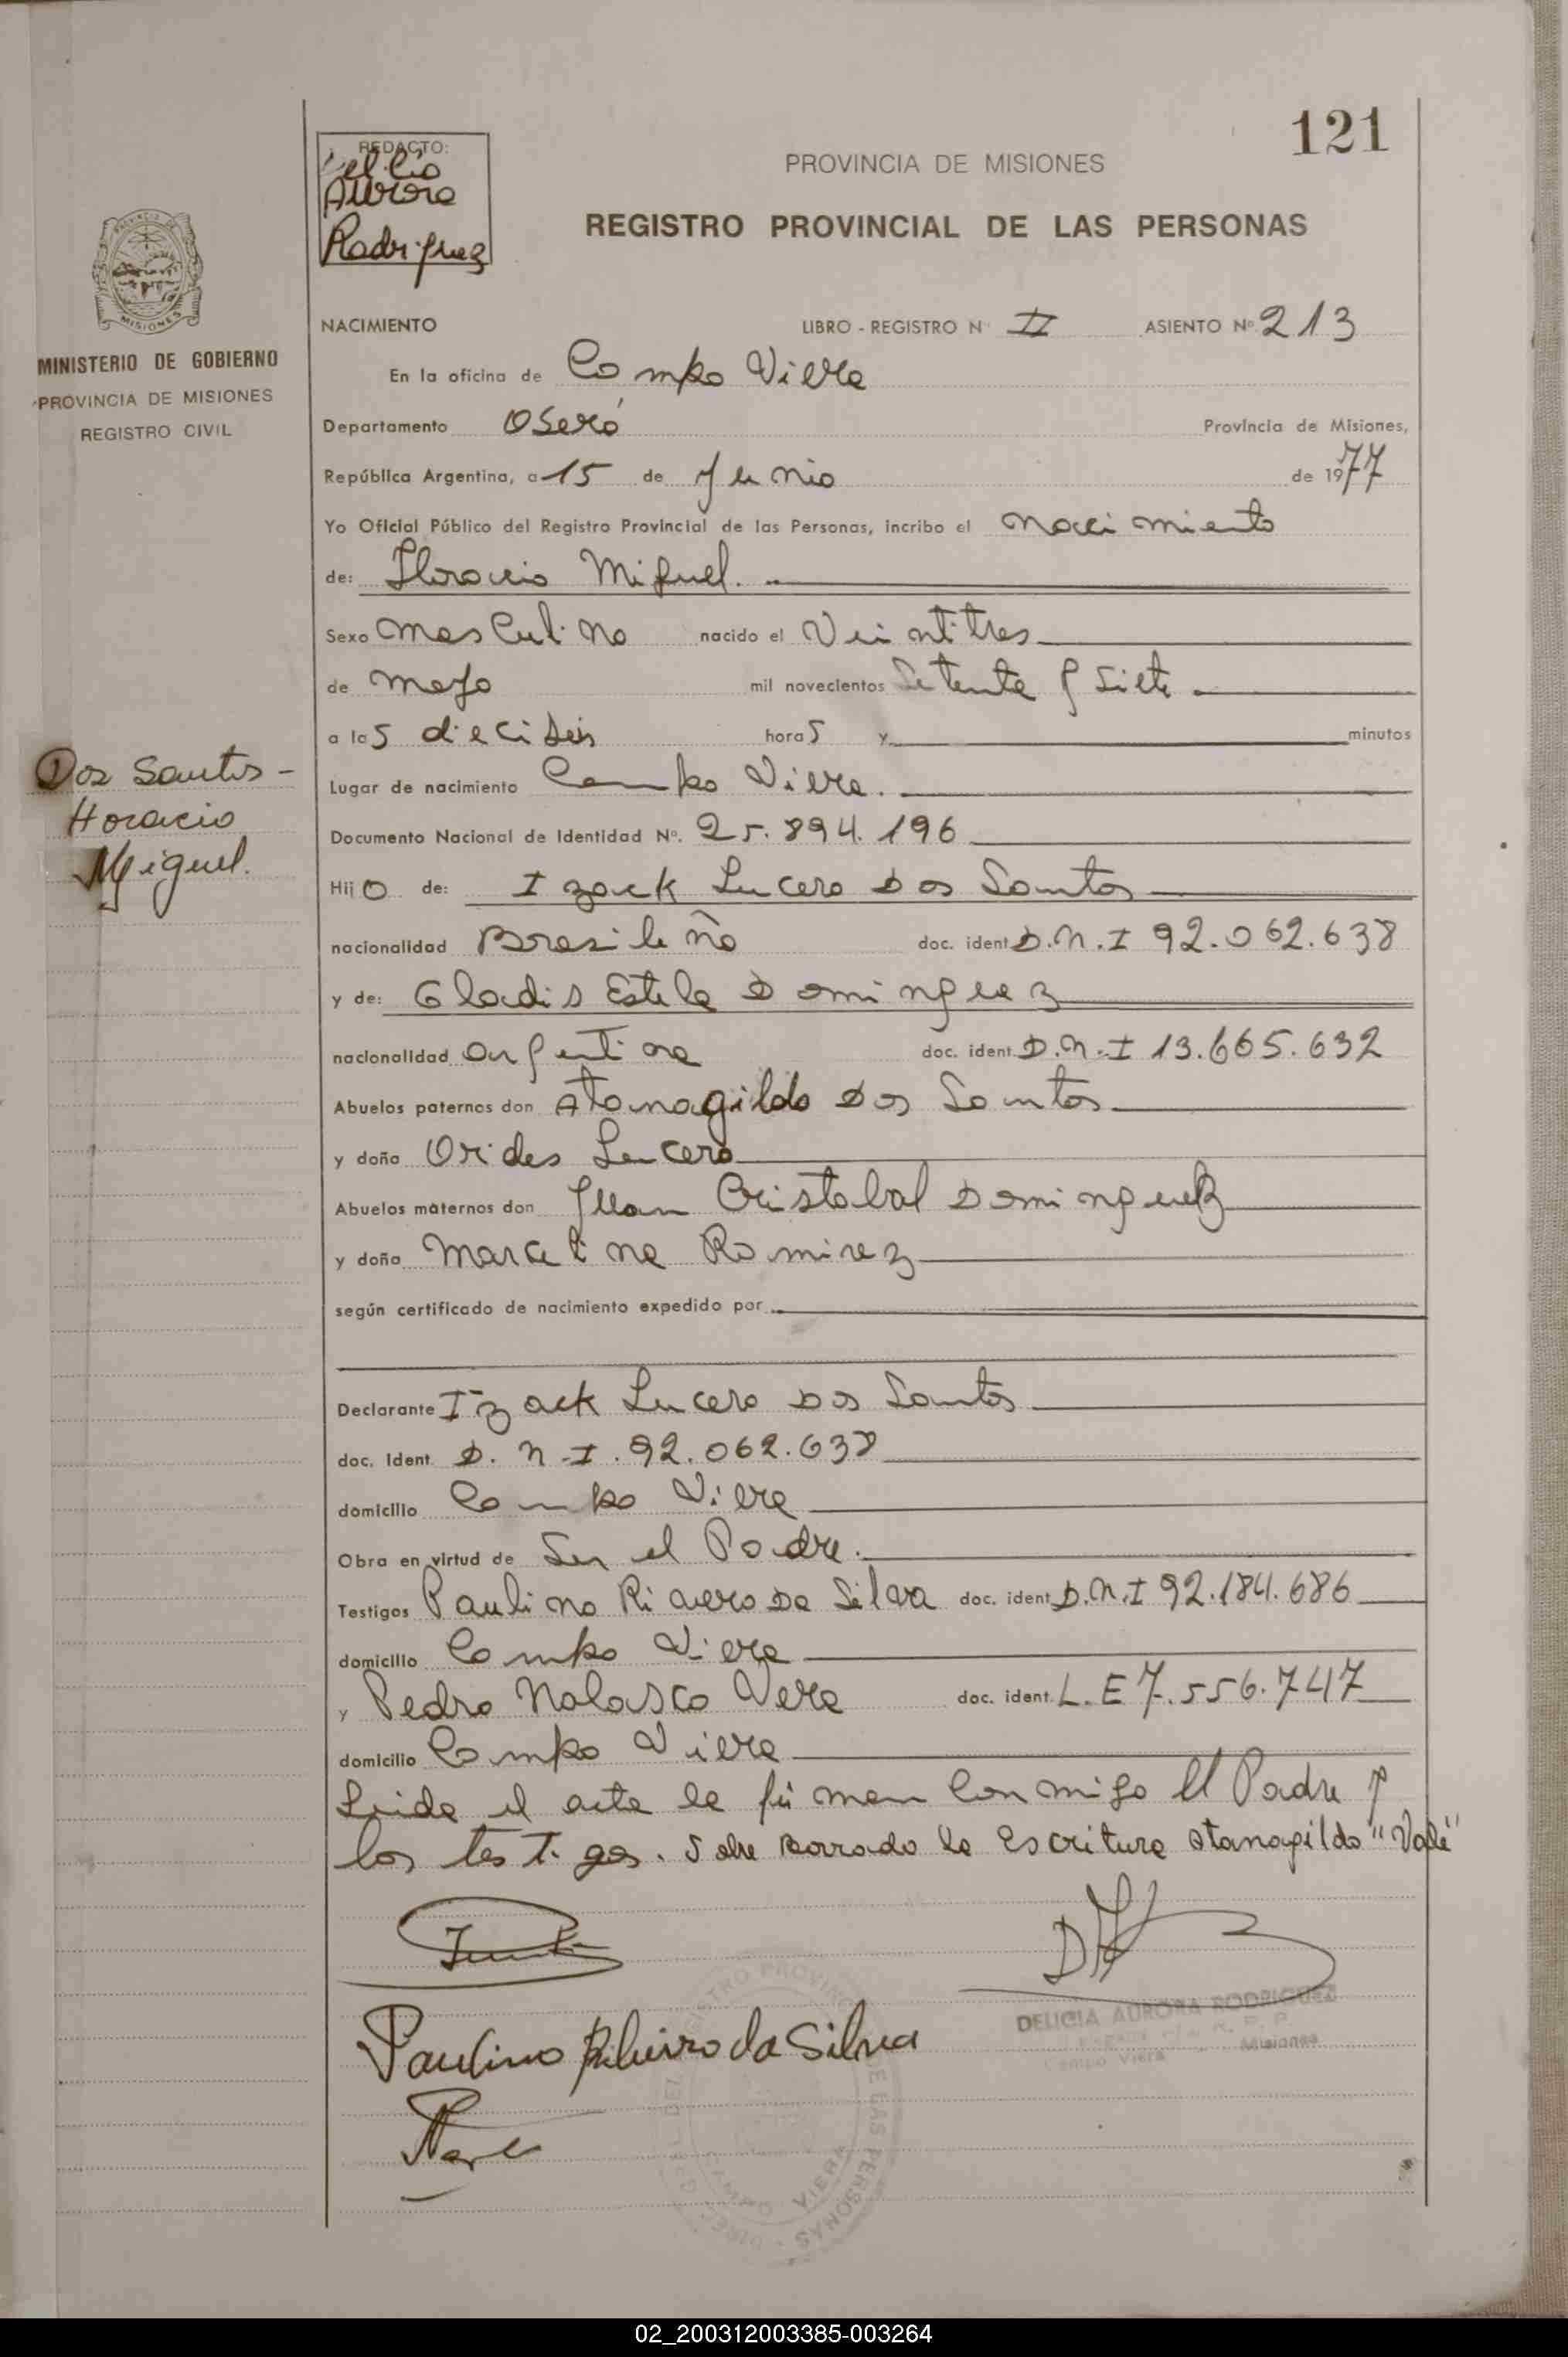 121
REDACTO:
Aurora
Rodriguez
PROVINCIA DE MISIONES
REGISTRO PROVINCIAL DE LAS PERSONAS
MISIONES
MINISTERIO DE GOBIERNO
PROVINCIA DE MISIONES
REGISTRO CIVIL
NACIMIENTO LIBRO - REGISTRO Nº II ASIENTO Nº 213
En la oficina de Campo Viera
Departamento Oberá Provincia de Misiones,
República Argentina, a 15 de Junio de 1977
Yo Oficial Público del Registro Provincial de las Personas, incribo el nacimiento
de: Horacio Miguel.
Sexo masculino nacido el Veintitres
de mayo mil novecientos Setenta y Siete
a las dieciseis horas y minutos
Dos Santos -
Horacio
Miguel.
Lugar de nacimiento Campo Viera.
Documento Nacional de Identidad Nº. 25.894.196
Hijo de: Izack Lucero Dos Santos
nacionalidad Brasileño doc. ident. D.N.I 92.062.638
y de: Gladis Estela Dominguez
nacionalidad argentina doc. ident. D.N.I 13.665.632
Abuelos paternos don Atanagildo Dos Santos
y doña Orides Lucero
Abuelos maternos don Juan Cristobal Dominguez
y doña Marcelina Ramirez
según certificado de nacimiento expedido por
Declarante Izack Lucero Dos Santos
doc. Ident. D.N.I. 92.062.638
domicilio Campo Viera
Obra en virtud de Ser el Padre.
Testigos Paulino Rivero Da Silva doc. ident. D.N.I 92.184.686
domicilio Campo Viera
y Pedro Nolasco Vera doc. ident. L.E 7.556.747
domicilio Campo Viera
Leida el acta la firman Conmigo el Padre y
los testigos. Sobre borrado la Escritura Atanagildo "Vale"
DELICIA AURORA RODRIGUEZ
Campo Viera Misiones
Paulino Ribeiro da Silva
CAMPO VIERA
02_200312003385-003264